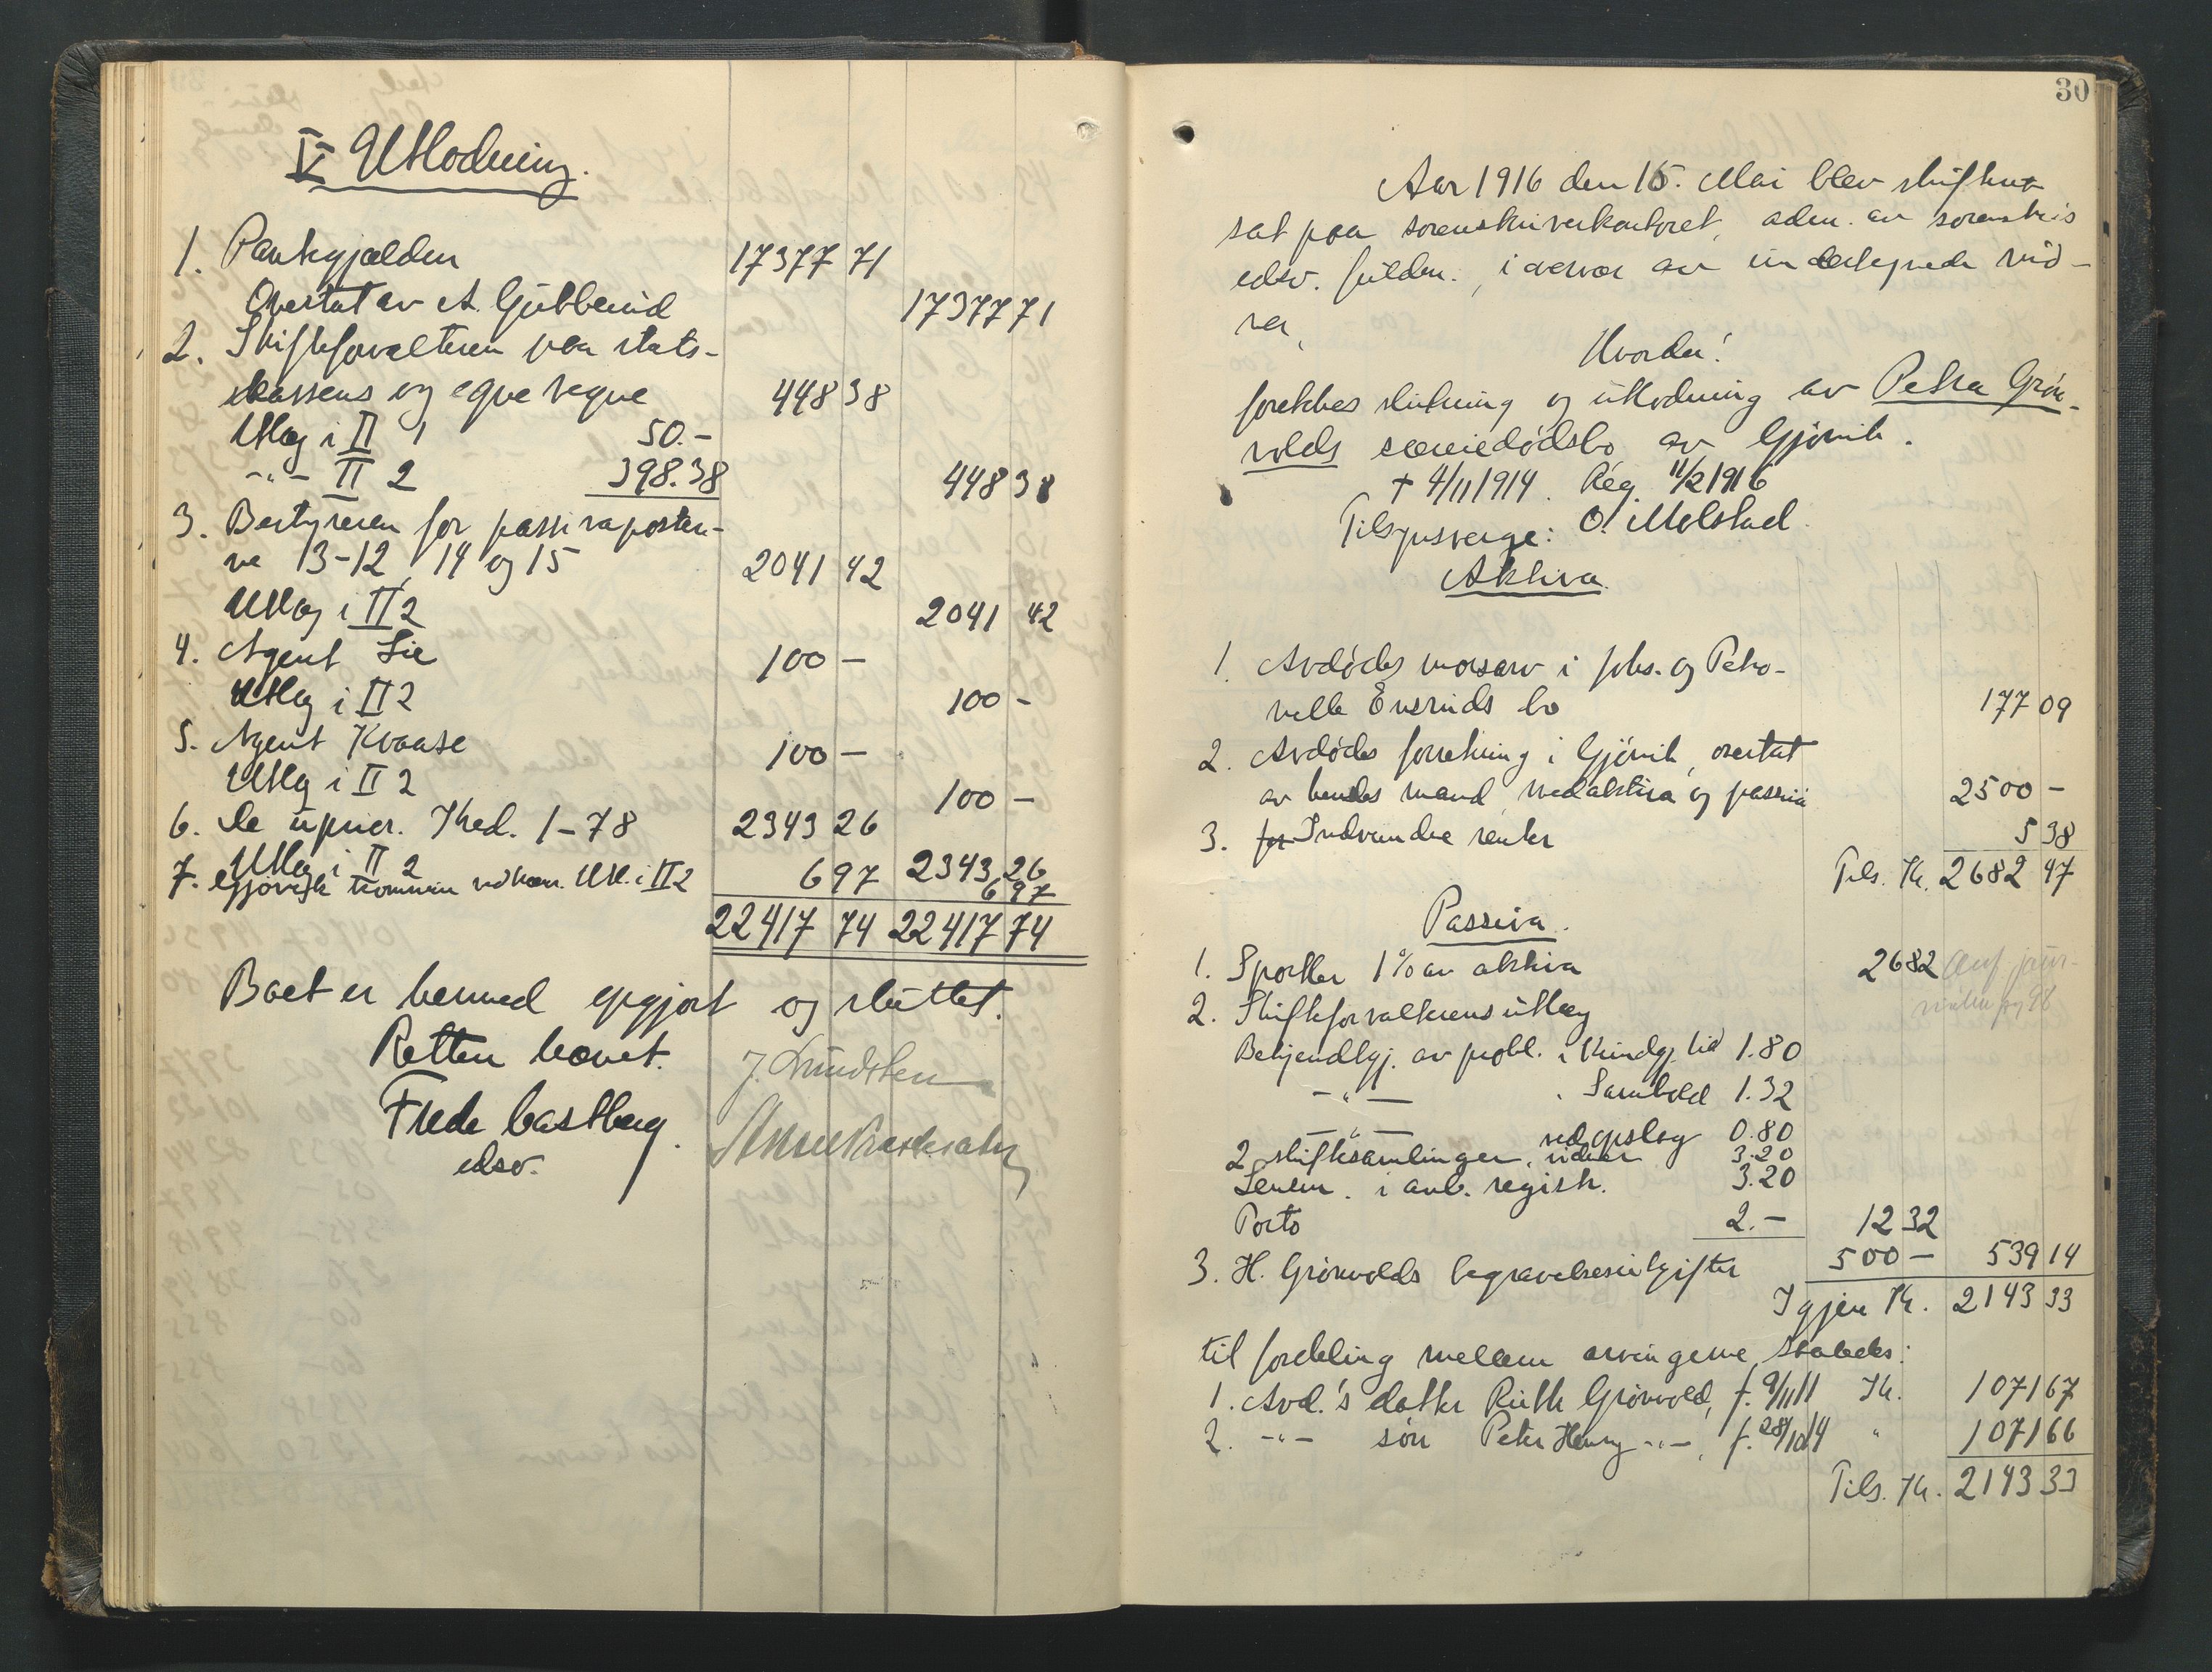 V Utlodning.
1. Pantegjælden 17377 71
Overtat av A. Gubberud 17377 71
2. Skifteforvalteren paa stats-
kassens og egne vegne 448 38
Utlæg i II 1 50.-
-"- II 2 398.38 448 38
3. Bestyreren for passivaposter-
ne 13-12, 14 og 15 2041 42
Utlæg i II 2 2041 42
4. Agent Lie 100 -
Utlæg i II 2 100 -
5. Agent Kvaase 100 -
Utlæg i II 2 100 -
6. De uprior. Kred. 1-78 2343 26
Utlæg i II 2 2343 26
7. Gjøvik kommune Utl. i II 2 6 97 6 97
22417 74 22417 74
Boet er hermed opgjort og sluttet.
Retten hævet.
Frede Castberg
edsv.
30
Aar 1916 den 15. Mai blev skifteret
sat paa sorenskriverkontoret, adm. av sorenskris
edsv. fuldm., i overvær av undertegnede vid-
ner,
Hvorda!
foretokes slutning og utlodning av Petra Grøn-
volds særeiedødsbo av Gjøvik.
† 4/11 1914. Reg. 11/2 1916
Tilsynsverge: O. Melstad.
Aktiva.
1. Avdødes morsarv i Johs. og Petro-
nelle Evensruds bo 177 09
2. Avdødes forretning i Gjøvik, overtat
av hendes mand med aktiva og passiva 2500 -
3. for Indvundne renter 5 38
Tils. Kr. 2682 47
Passiva.
1. Sportler 1% av aktiva 26 82
2. Skifteforvalterens utlæg
Bekjendtgj. av probl. i Kundgj. tid 1.80
-"- Samhold 1.32
-"- ved opslag 0.80
2 skiftesamlinger, vidner 3.20
i anl. registr. 3.20
Porto 2.- 12 32
3. H. Grønvolds begravelsesutgifter 500 - 539 14
Igjen Kr. 2143 33
til fordeling mellem arvingerne, saaledes:
1. Avd.'s datter Ruth Grønvold, f. 9/11 11 Kr. 1071 67
2. -"- søn Peter Henry -"-, f. 28/10 14 " 1071 66
Tils. Kr. 2143 33